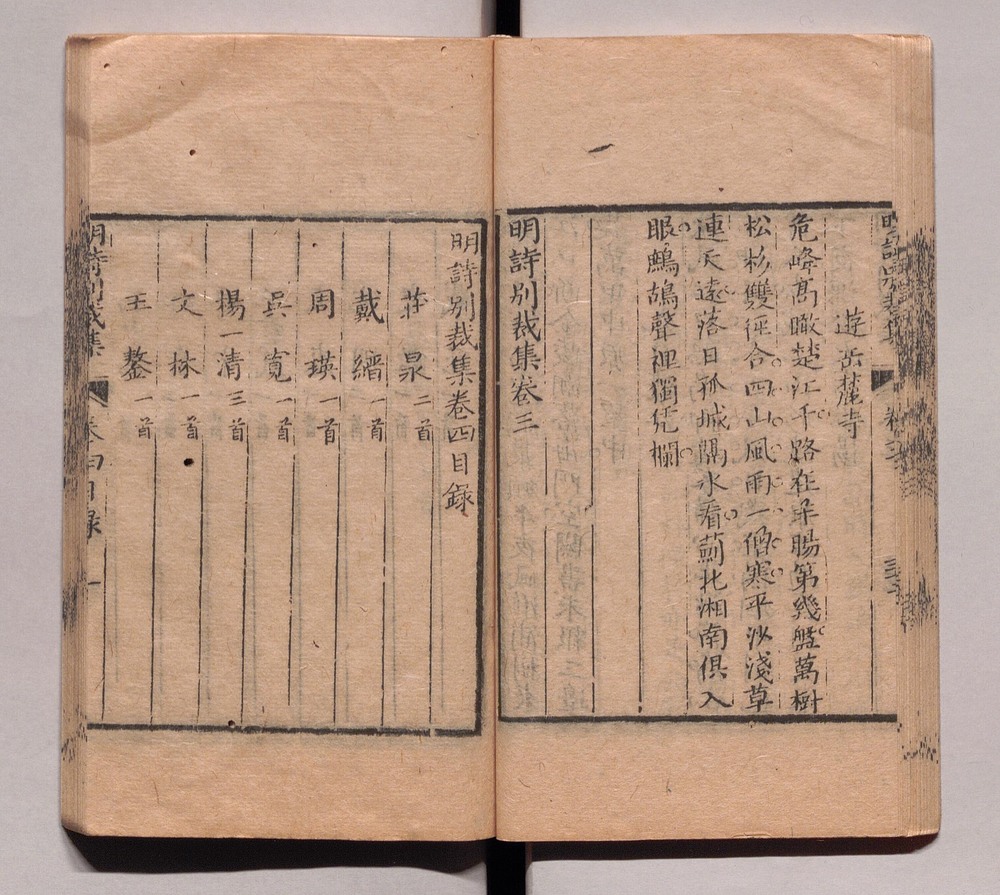 明詩別裁集
卷三
遊岳麓寺
危峰髙瞰楚江干路在羊腸第幾盤萬樹
松杉雙徑合四山風雨一僧寒平沙淺草
連天遠落日孤城隔水看薊北湘南俱入
眼鷓鴣聲裡獨凭欄
明詩別裁集卷三
明詩別裁集卷四目録
莊㫤二首
戴縉一首
周瑛一首
吳寛一首
楊一清三首
文林一首
王鏊一首
明詩別裁集
卷四目録
一